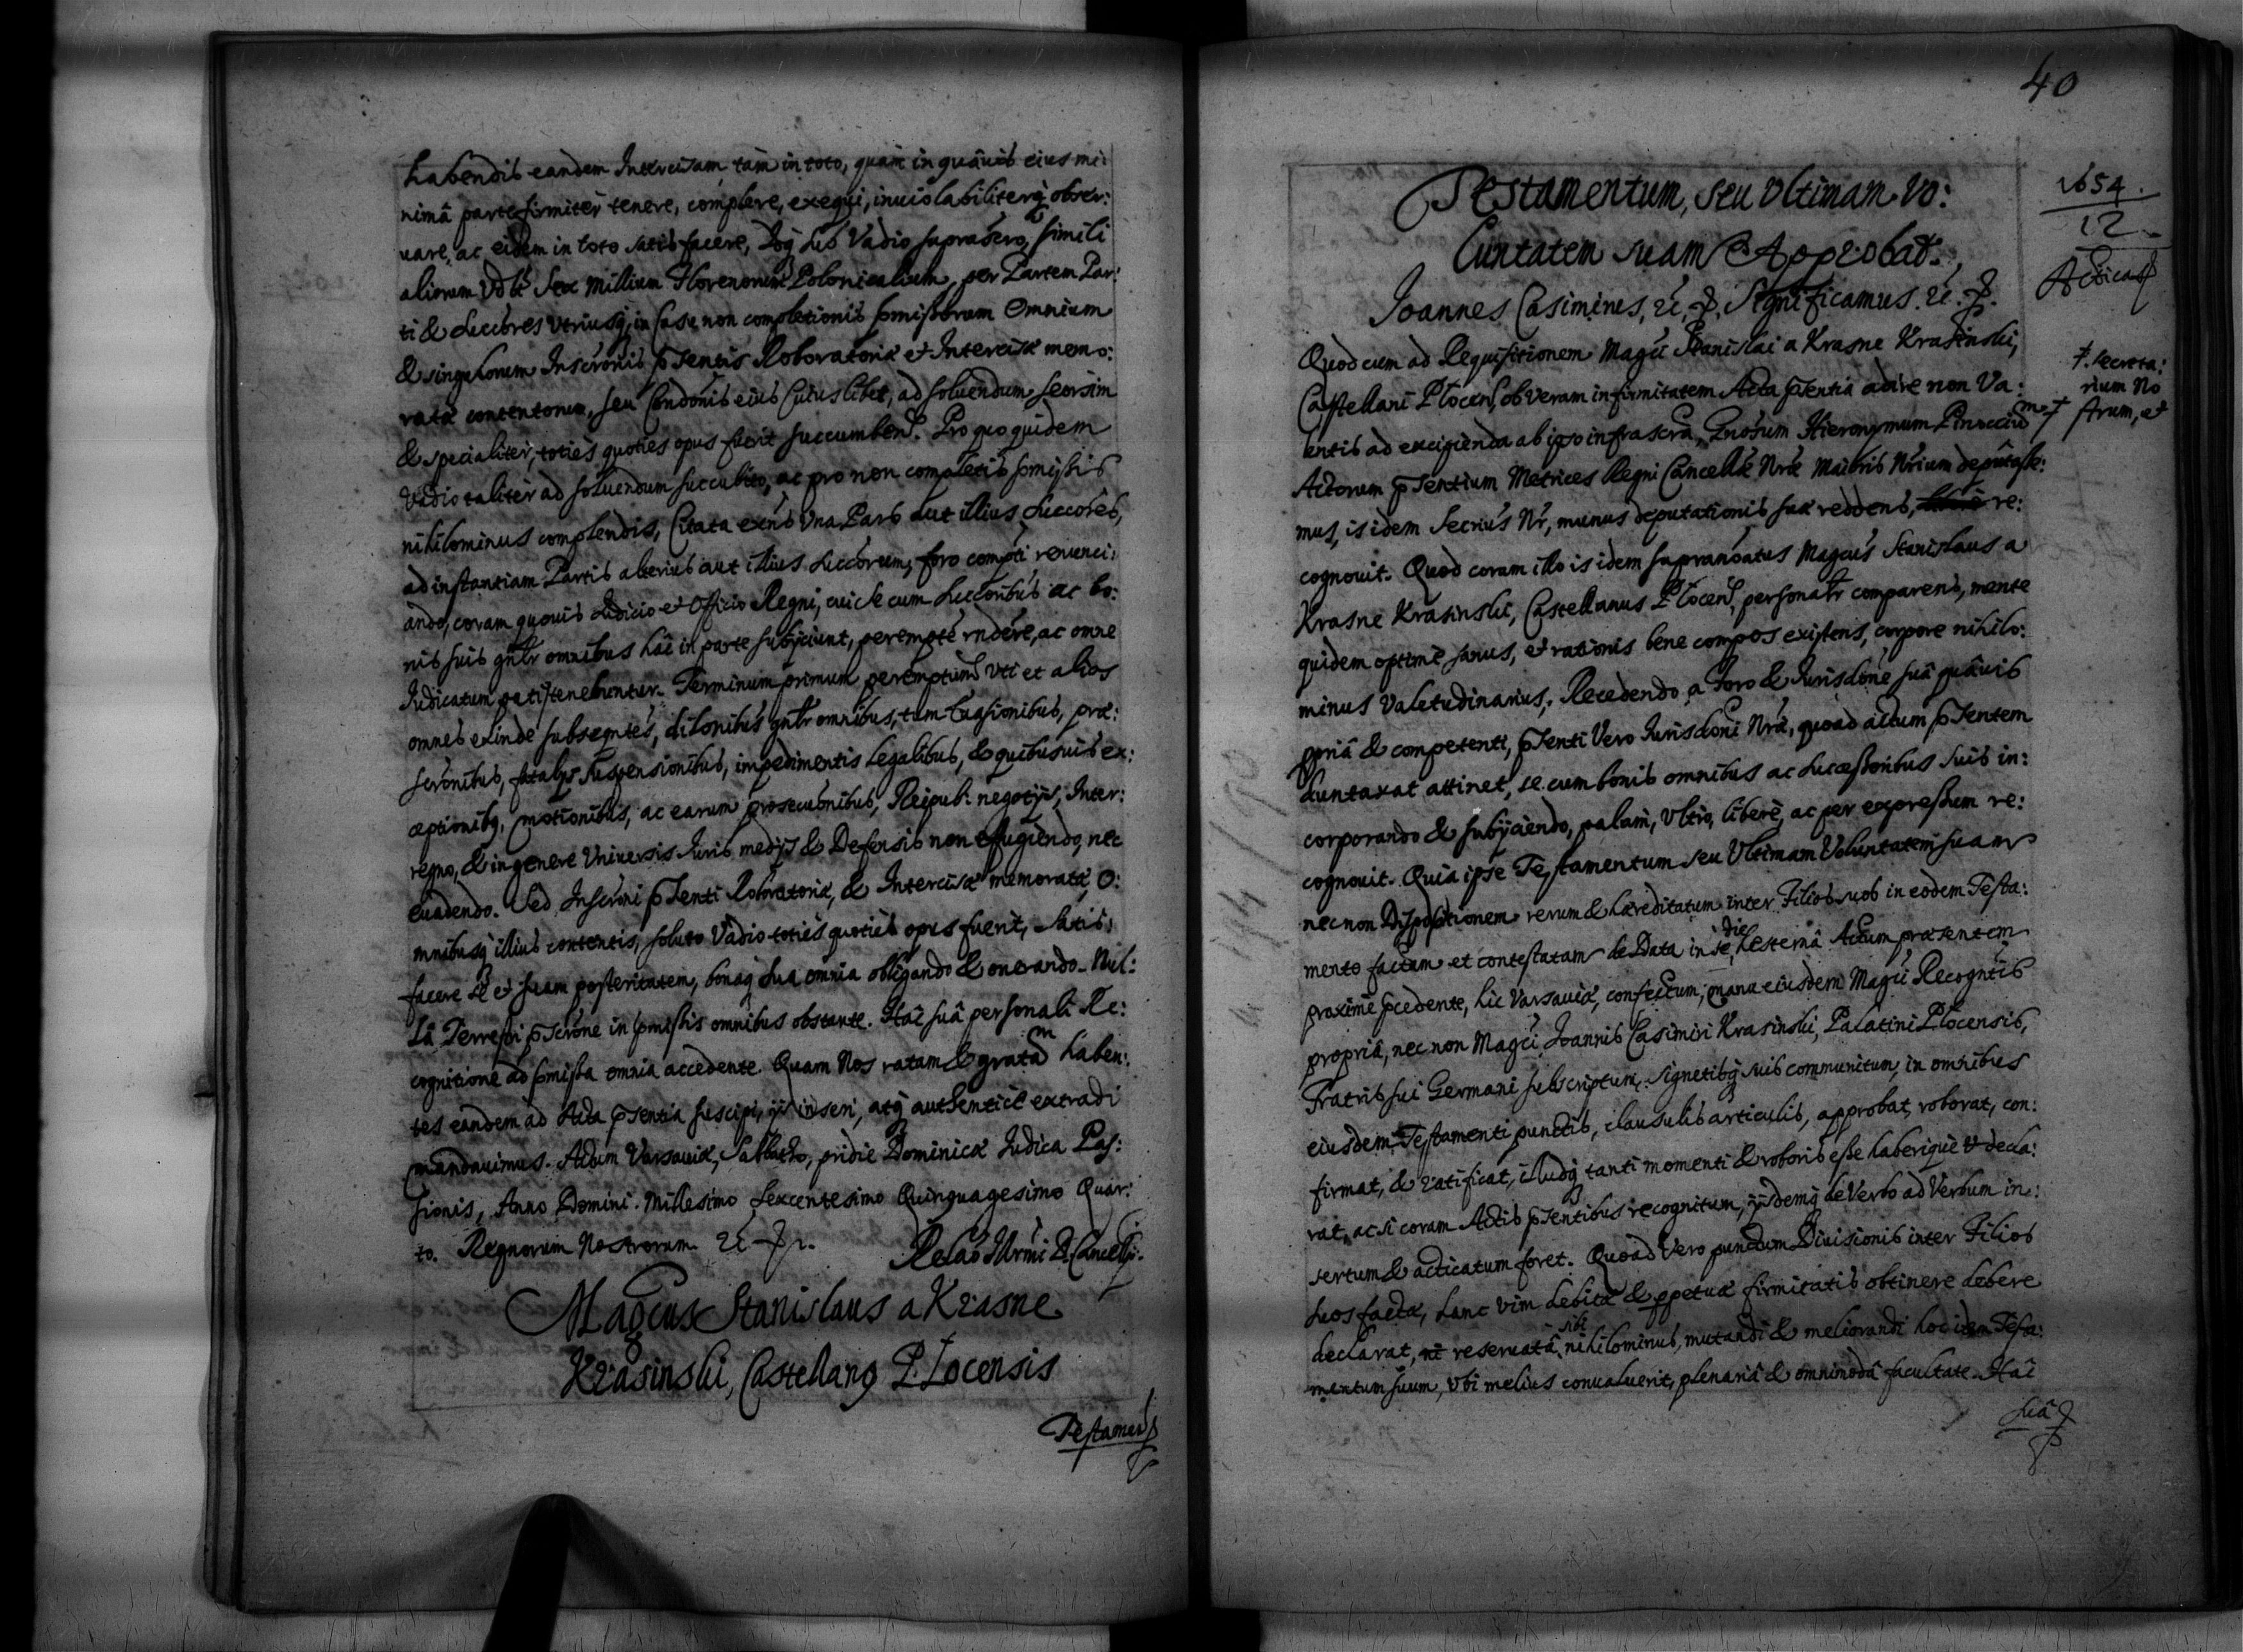 habendis eandem Intercisam, tam in toto, quàm in quâuis eius mi:
nimâ parte firmiter tenere, complere, exequi, inuiolabiliterq obser:
uare, ac eidem in toto satisfacere, Idq sub Vadio suprascro, simili
aliorum Sex Millium Florenorum Polonicalium, per Partem Par:
ti & succéres Vtriusq, in Casu non completionis pmissorum Omnium
& singulorum Inscronis pntis Roboratoriæ et Intercisæ memo:
ratæ contentorum, seu Condonis eius Cuiuslibet, ad soluendum seorsim
& specialiter, toties quoties opus fuerit succumben. Pro quo quidem
Vadio taliter ad soluendum succubito, ac pro non completis pmissis
nihilominus complendis, Citata exñs Vna Pars aut illius succores,
ad instantiam Partis alterius aut illius succorum, foro compti renunci:
ando, coram quouis Iudicio et Officio Regni, cui se cum succoribus ac bo:
nis suis gnlr omnibus hâc in parte subijciunt, peremptè rndere, ac omne
Iudicatum pati tenebuntur. Terminum primum peremptum Vti et alios
omnes exinde subsegntes, dilonibus gnlr omnibus, tum Euasionibus, præ:
scronibus, fatalijs suspensionibus, impedimentis Legalibus, & quibusuis ex:
ceptionibq, motionibus, ac earum prosecutionibus, Reipub: negotijs, Inter:
regno, & in genere Vniuersis Iuris medijs & Defensis non effugiendo, nec
euadendo. Sed Inscroni pnti Roboratoriæ, & Intercisæ memoratæ, O:
mnibusq illius contentis, soluto Vadio toties quoties opus fuerit, satis:
facere se et suam posteritatem, bonaq sua omnia obligando & onerando. Nul:
lâ Terrestri pscrone in pmissis omnibus obstante. Hâc suâ personali Re:
cognitione ad pmissa omnia accedente. Quam Nos ratam & gratam haben:
tes eandem ad Acta pntia suscipi, ijs inseri, atq authenticè extradi
mandauimus. Actum Varsauiæ, Sabbatho, pridie Dominicæ Iudica Pas:
sionis, Anno Domini. Millesimo Sexcentesimo Quinquagesimo Quar:
to. Regnorum Nostrorum &c
Relao Illrmi D. Cancellrij.
Magcus Stanislaus a Krasne
Krasinski, Castellanq Plocensis
Testamen
40
Testamentum, seu Vltimam Vo:
luntatem suam Approbat.
Ioannes Casimirus, &c. Significamus. &c.
1654.
12
Acticat
Quod cum ad Requisitionem Magci Stanislai a Krasne Krasinski,
Castellani Plocen, ob veram infirmitatem Acta pntia adire non Va:
lentis ad excipienda ab ipso infrascra, Gnosum Hieronymum Pinoccium
secreta:
rium No
strum, et
Actorum pntium Metrices Regni Cancellæ Nræ Maioris Nrium deputasse:
mus, is idem Secrius Nr, munus deputationis suæ reddens, re:
cognouit. Quod coram illo is idem supranoatus Magcus Stanislaus a
Krasne Krasinski, Castellanus Plocen, personalr comparens, mente
quidem optimè sanus, et rationis bene compos existens, corpore nihilo:
minus Valetudinarius, Recedendo a Foro & Iurisdone suâ quâuis
ppriâ & competenti, pnti Vero Iurisdoni Nræ, quoad actum pntem
duntaxat attinet, se cum bonis omnibus ac successoribus suis in:
corporando & subijciendo, palam, Vltro, liberè, ac per expressum re:
cognouit. Quia ipse Testamentum seu Vltimam Voluntatem suam
necnon Dispositionem rerum & hæreditatum inter Filios suos in eodem Testa:
mento factam et contestatam de Data in se, die hesternâ Actum præsentem
proximè pcedente, hic Varsauiæ, confectum, manu eiusdem Magci Recogntis
propriâ, nec non Magci Ioannis Casimiri Krasinski, Palatini Plocensis,
Fratris sui Germani subscriptum, signetibq suis communitum, in omnibus
eiusdem Testamenti punctis, clausulis articulis, approbat, roborat, con:
firmat, & ratificat, illudq tanti momenti & roboris esse haberique decla:
rat, ac si coram Actis pntibus recognitum, ijsdemq de Verbo ad Verbum in:
sertum & acticatum foret. Quoad Vero punctum Diuisionis inter Filios
suos factæ, hanc vim debitæ & ppetuæ firmitatis obtinere debere
declarat, reseruatâ sibi nihilominus, mutandi & meliorandi hoc idem Testa:
mentum suum, Vbi melius conualuerit, plenariâ & omnimodâ facultate. Hâc
suâ